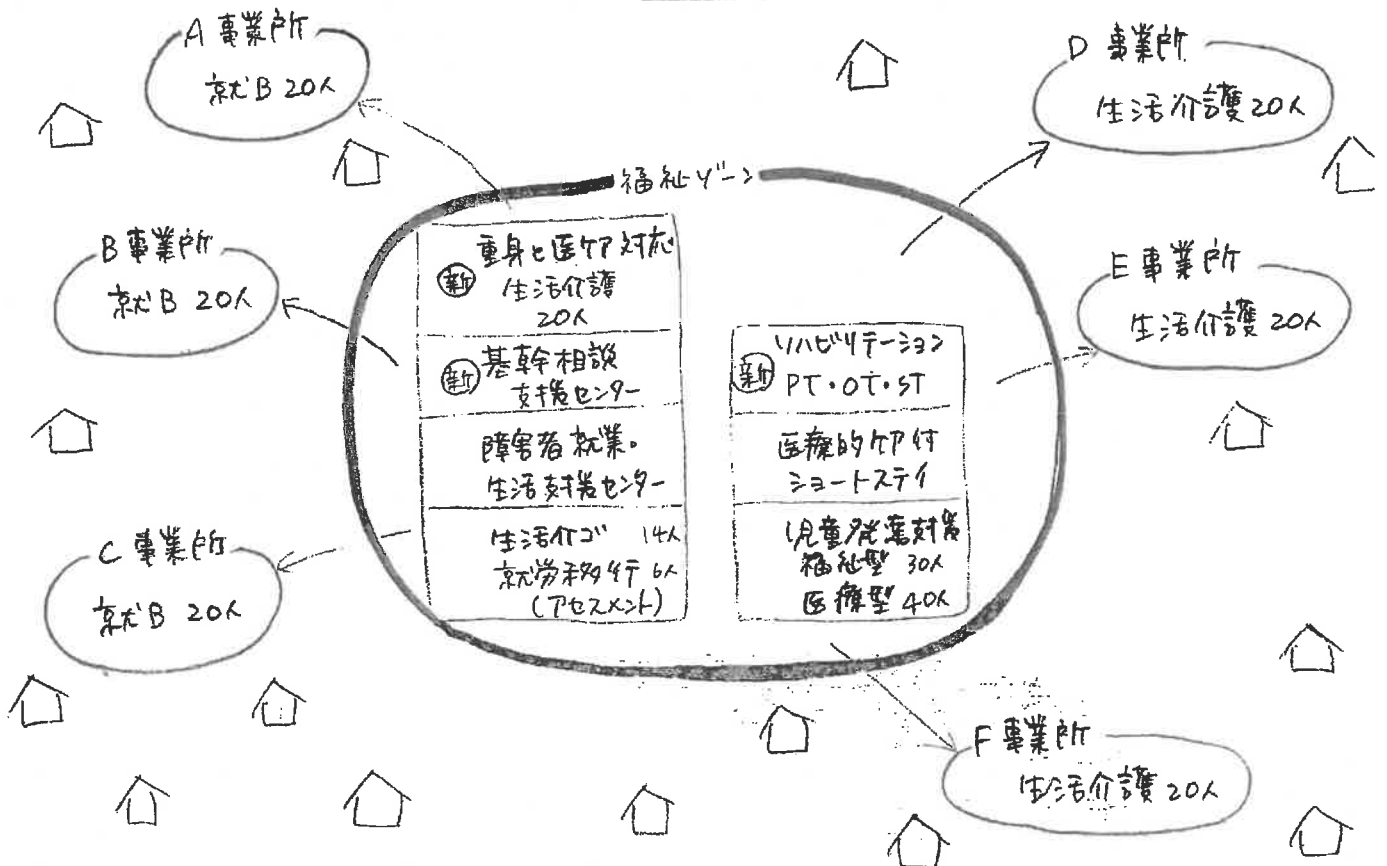 A 事業所
就B 20人
B 事業所
就B 20人
C 事業所
就B 20人
福祉ゾーン
新
重身と医ケア対応
生活介護
20人
新
基幹相談
支援センター
障害者就業・
生活支援センター
生活介ゴ 14人
就労移行 6人
(アセスメント)
新
リハビリテーション
PT・OT・ST
医療的ケア付
ショートステイ
児童発達支援
福祉型 30人
医療型 40人
D 事業所
生活介護 20人
E 事業所
生活介護 20人
F 事業所
生活介護 20人